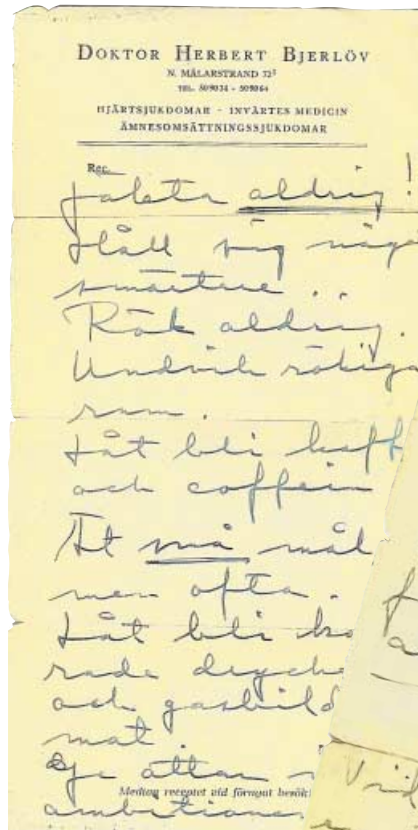 DOKTOR HERBERT BJERLÖV
N. MÄLARSTRAND 72²
TEL. 509034 - 509064
HJÄRTSJUKDOMAR - INVÄRTES MEDICIN
ÄMNESOMSÄTTNINGSSJUKDOMAR
Rec.
Fasta aldrig!
Håll sig någ
smärtere..
Rök aldrig.
Undvik rökiga
rum.
Låt bli kaff
och coffein
Ät små mål
men ofta.
Låt bli ko
rade dryck
och gasbild
mat.
Ge attan i
Medtag receptet vid förnyat besök!
ambitioner